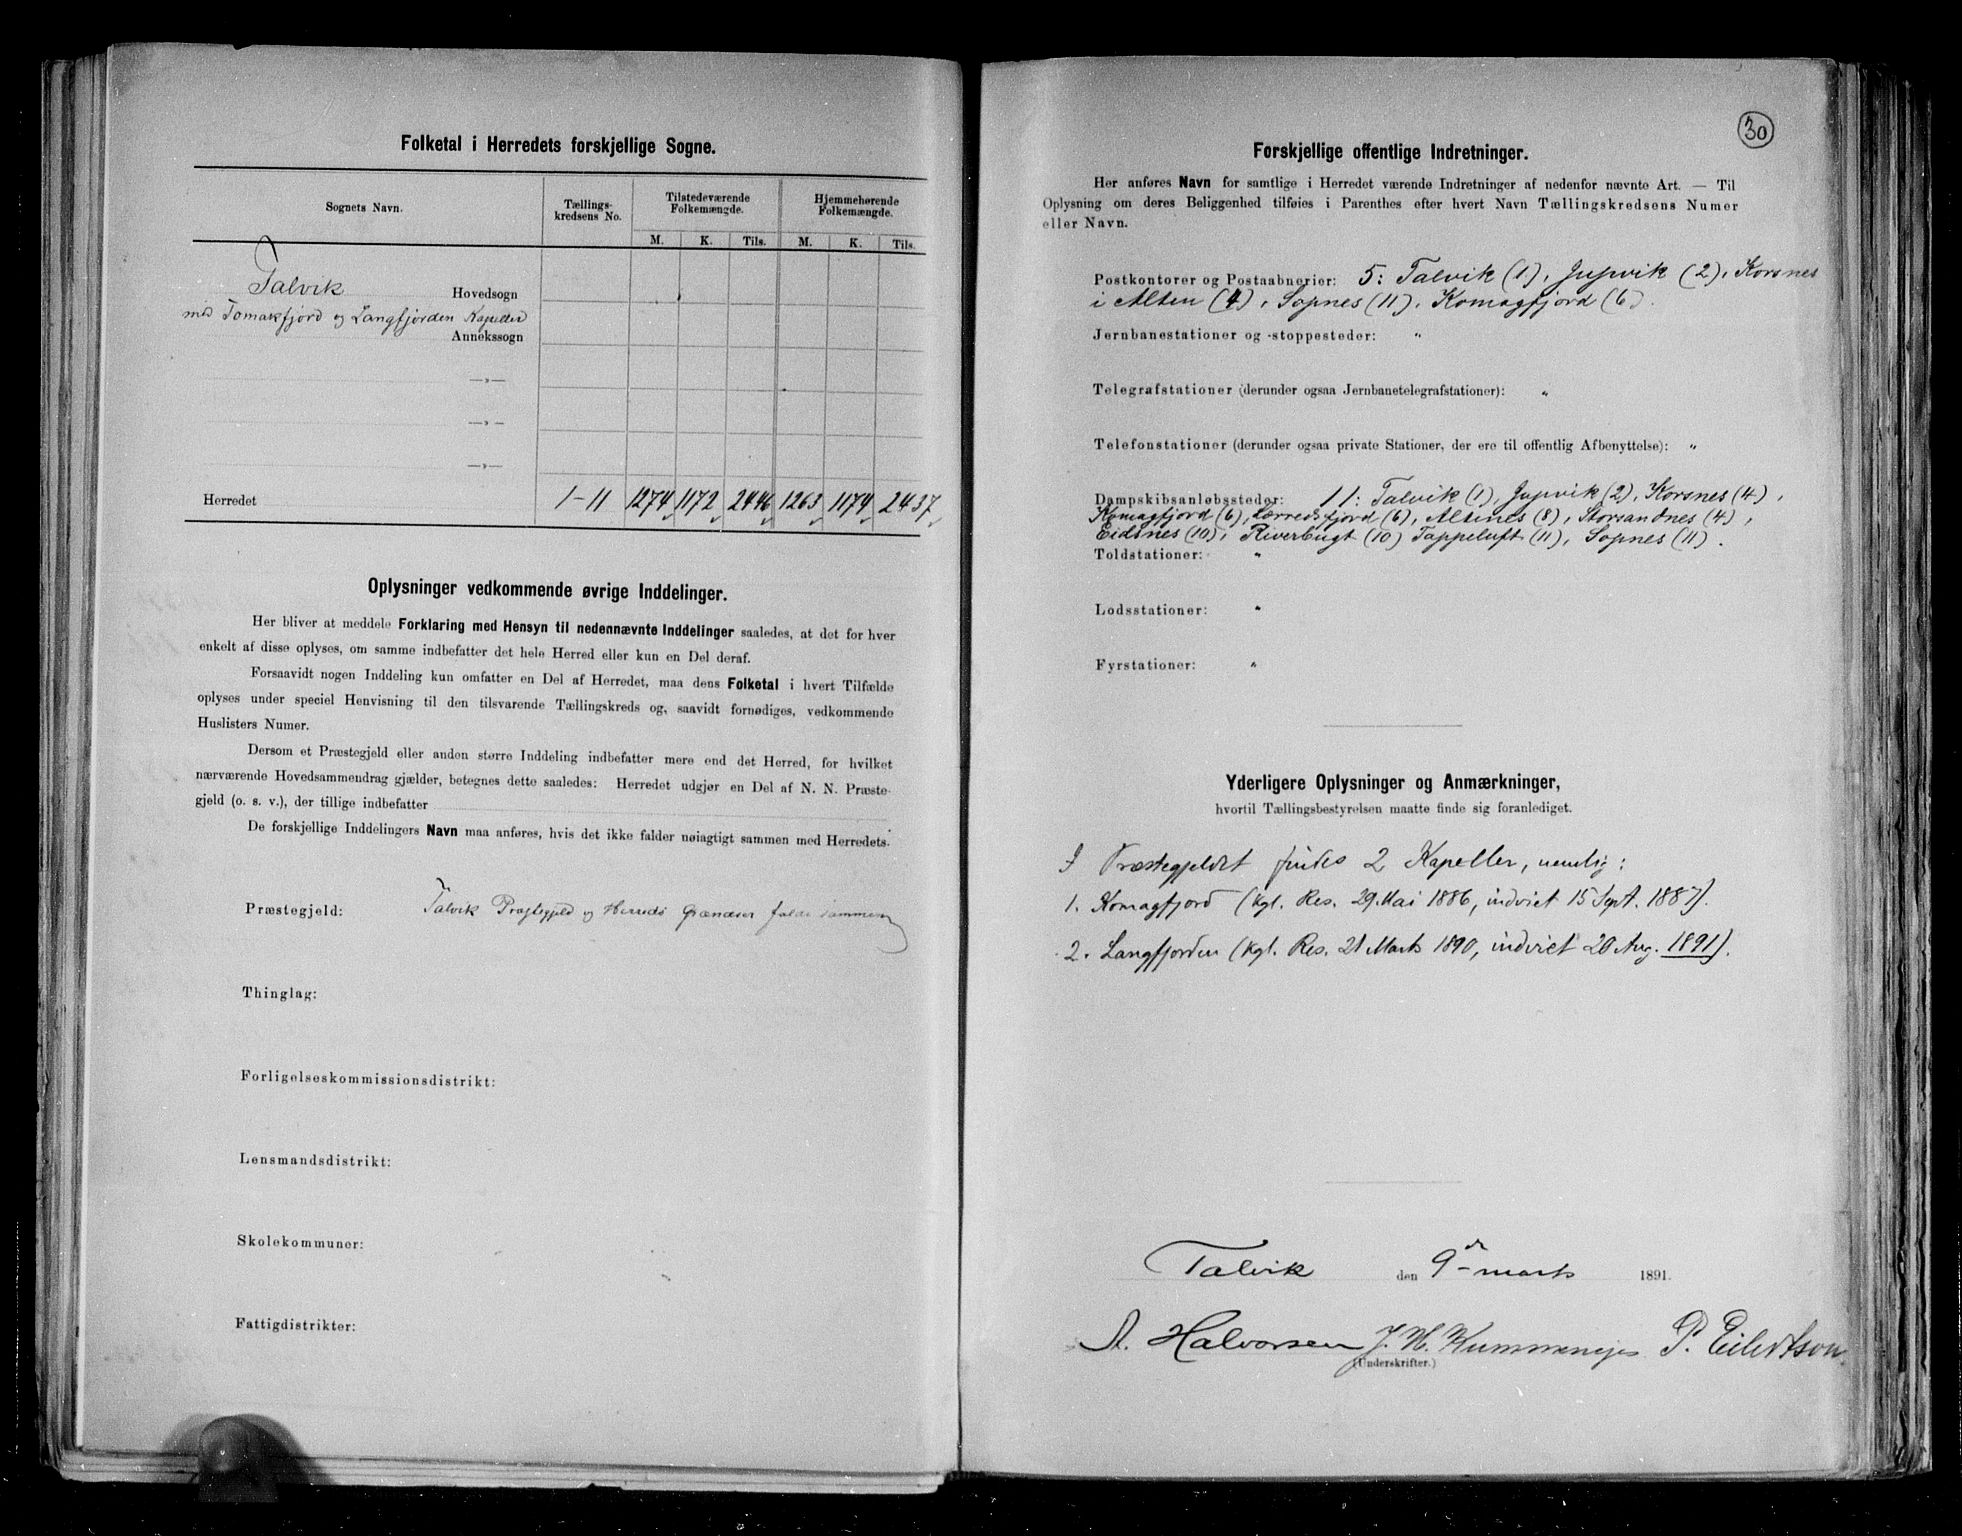 Folketal i Herredets forskjellige Sogne.
Sognets Navn.
Tællings-
kredsens No.
Tilstedeværende
Folkemængde.
Hjemmehørende
Folkemængde.
M. K. Tils. M. K. Tils.
Talvik Hovedsogn
med Komakfjord og Langfjorden Kapeller
Annekssogn
—„—
—„—
—„—
Herredet 1-11 1274 1172 2446 1263 1174 2437
Oplysninger vedkommende øvrige Inddelinger.
Her bliver at meddele Forklaring med Hensyn til nedennævnte Inddelinger saaledes, at det for hver
enkelt af disse oplyses, om samme indbefatter det hele Herred eller kun en Del deraf.
Forsaavidt nogen Inddeling kun omfatter en Del af Herredet, maa dens Folketal i hvert Tilfælde
oplyses under speciel Henvisning til den tilsvarende Tællingskreds og, saavidt fornødiges, vedkommende
Huslisters Numer.
Dersom et Præstegjeld eller anden større Inddeling indbefatter mere end det Herred, for hvilket
nærværende Hovedsammendrag gjælder, betegnes dette saaledes: Herredet udgjør en Del af N. N. Præste-
gjeld (o. s. v.), der tillige indbefatter
De forskjellige Inddelingers Navn maa anføres, hvis det ikke falder nøiagtigt sammen med Herredets.
Præstegjeld: Talvik Præstegjeld og Herreds Grændser falde sammen
Thinglag:
Forligelseskommissionsdistrikt:
Lensmandsdistrikt:
Skolekommuner:
Fattigdistrikter:
30
Forskjellige offentlige Indretninger.
Her anføres Navn for samtlige i Herredet værende Indretninger af nedenfor nævnte Art. — Til
Oplysning om deres Beliggenhed tilføies i Parenthes efter hvert Navn Tællingskredsens Numer
eller Navn.
Postkontorer og Postaabnerier: 5: Talvik (1), Jupvik (2), Korsnes
i Alten (4), Sopnes (11), Komagfjord (6).
Jernbanestationer og -stoppesteder: „
Telegrafstationer (derunder ogsaa Jernbanetelegrafstationer): „
Telefonstationer (derunder ogsaa private Stationer, der ere til offentlig Afbenyttelse): „
Dampskibsanløbssteder: 11: Talvik (1), Jupvik (2), Korsnes (4),
Komagfjord (6), Lerredsfjord (6), Altenes (8), Storsandnes (4),
Eidsnes (10), Riverbugt (10) Tappeluft (11), Sopnes (11).
Toldstationer: „
Lodsstationer: „
Fyrstationer: „
Yderligere Oplysninger og Anmærkninger,
hvortil Tællingsbestyrelsen maatte finde sig foranlediget.
I Præstegjeldet findes 2 Kapeller, nemlig:
1. Komagfjord (kgl. Res. 29. Mai 1886, indviet 15 Sept. 1887).
2. Langfjorden (kgl. Res. 21 Marts 1890, indviet 20 Aug. 1891).
Talvik den 9de marts 1891.
A. Halvorsen J. H. P. Eilertsen
(Underskrifter.)